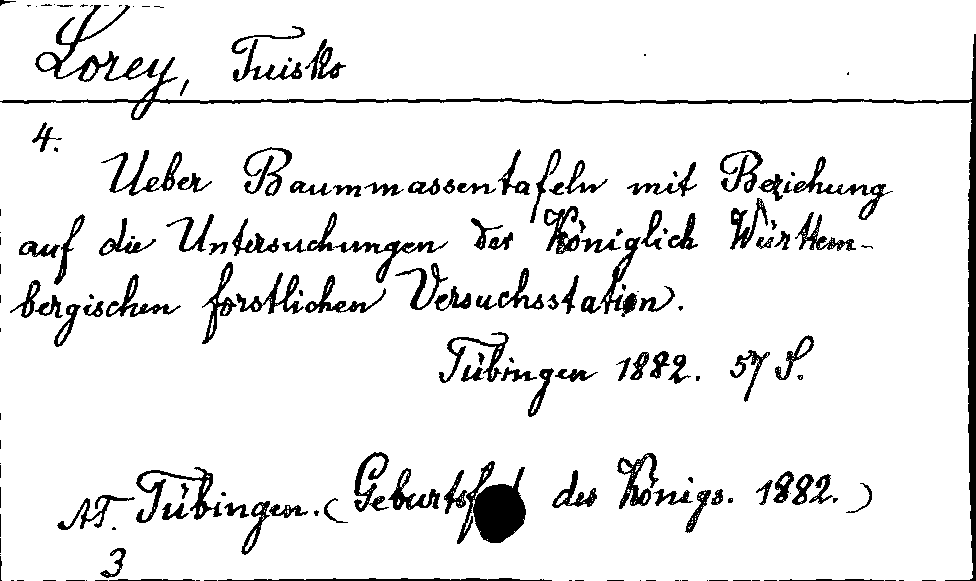 Lorey, Tuisko
4.
Ueber Baummassentafeln mit Beziehung
auf die Untersuchungen der Königlich Württem-
bergischen forstlichen Versuchsstation.
Tübingen 1882. 57 S.
AT. Tübingen. ( des Königs. 1882.)
3